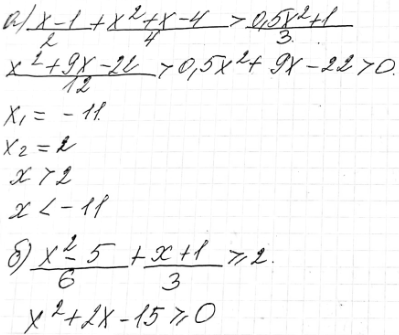 а) (x-1)/2 + (x²+x-4)/4 > (0,5x²+1)/3
(x²+9x-22)/12 > 0,5x²+9x-22>0.
x₁ = -11
x₂ = 2
x > 2
x < -11
б) (x²-5)/6 + (x+1)/3 ⩾ 2.
x²+2x-15 ⩾ 0